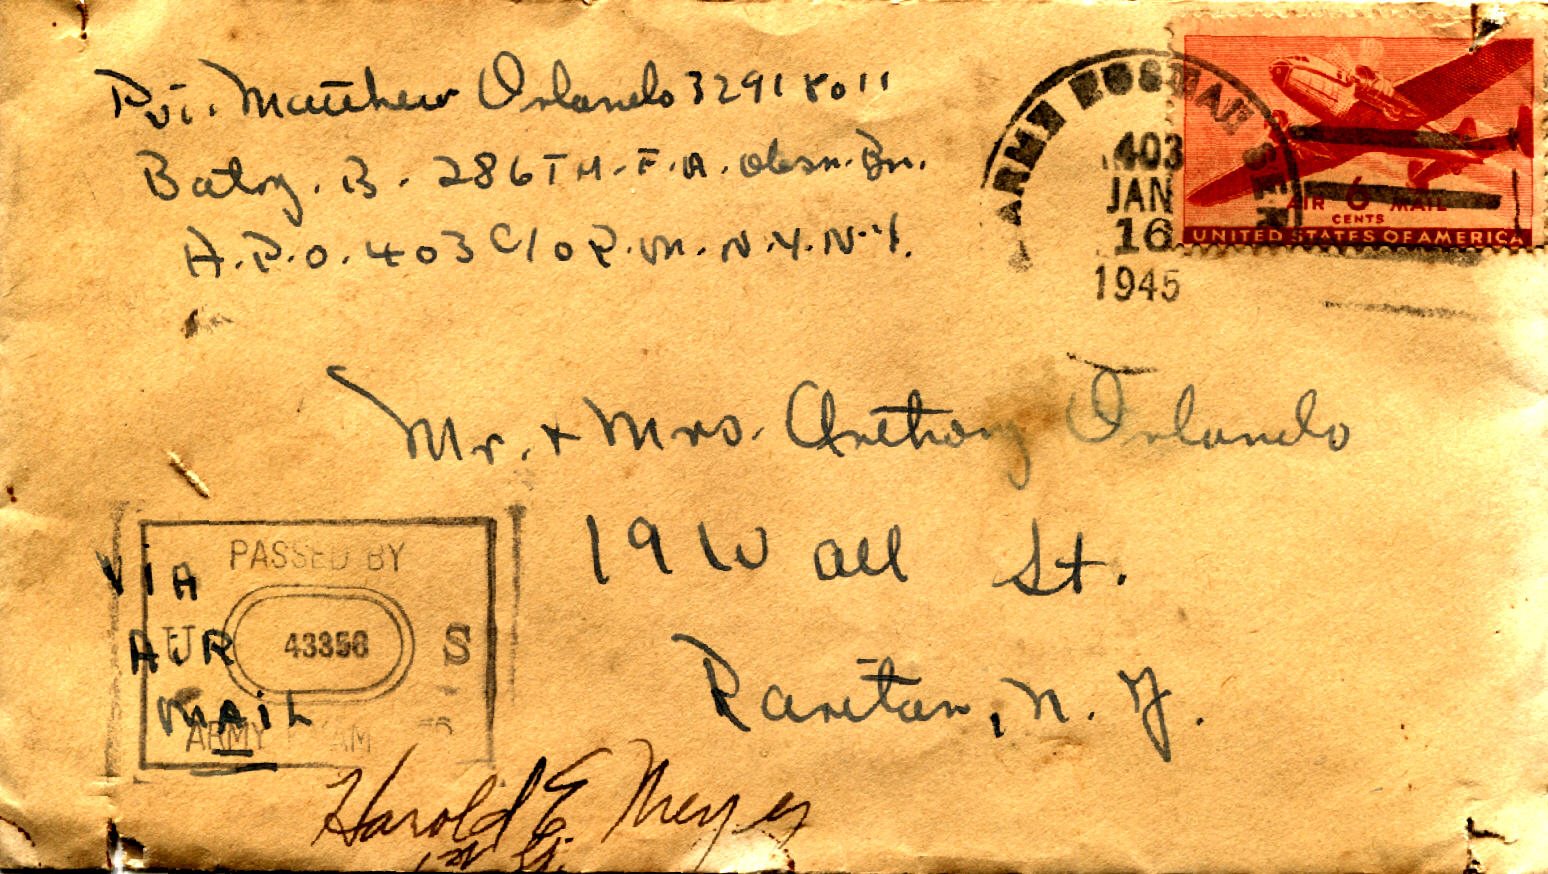 Pvt. Matthew Orlando 32918011
Batry. B. 286TH. F.A. Obsn. Bn.
A.P.O. 403 C/o P.M. N.Y. N.Y.
403
JAN
16
1945
AIR 6 MAIL
CENTS
UNITED STATES OF AMERICA
Mr. + Mrs. Anthony Orlando
19 Wall St.
Raritan, N. J.
PASSED BY
U 43358 S
ARMY EXAMINER
VIA
AIR
MAIL
Harold E. Meyer
1st Lt.